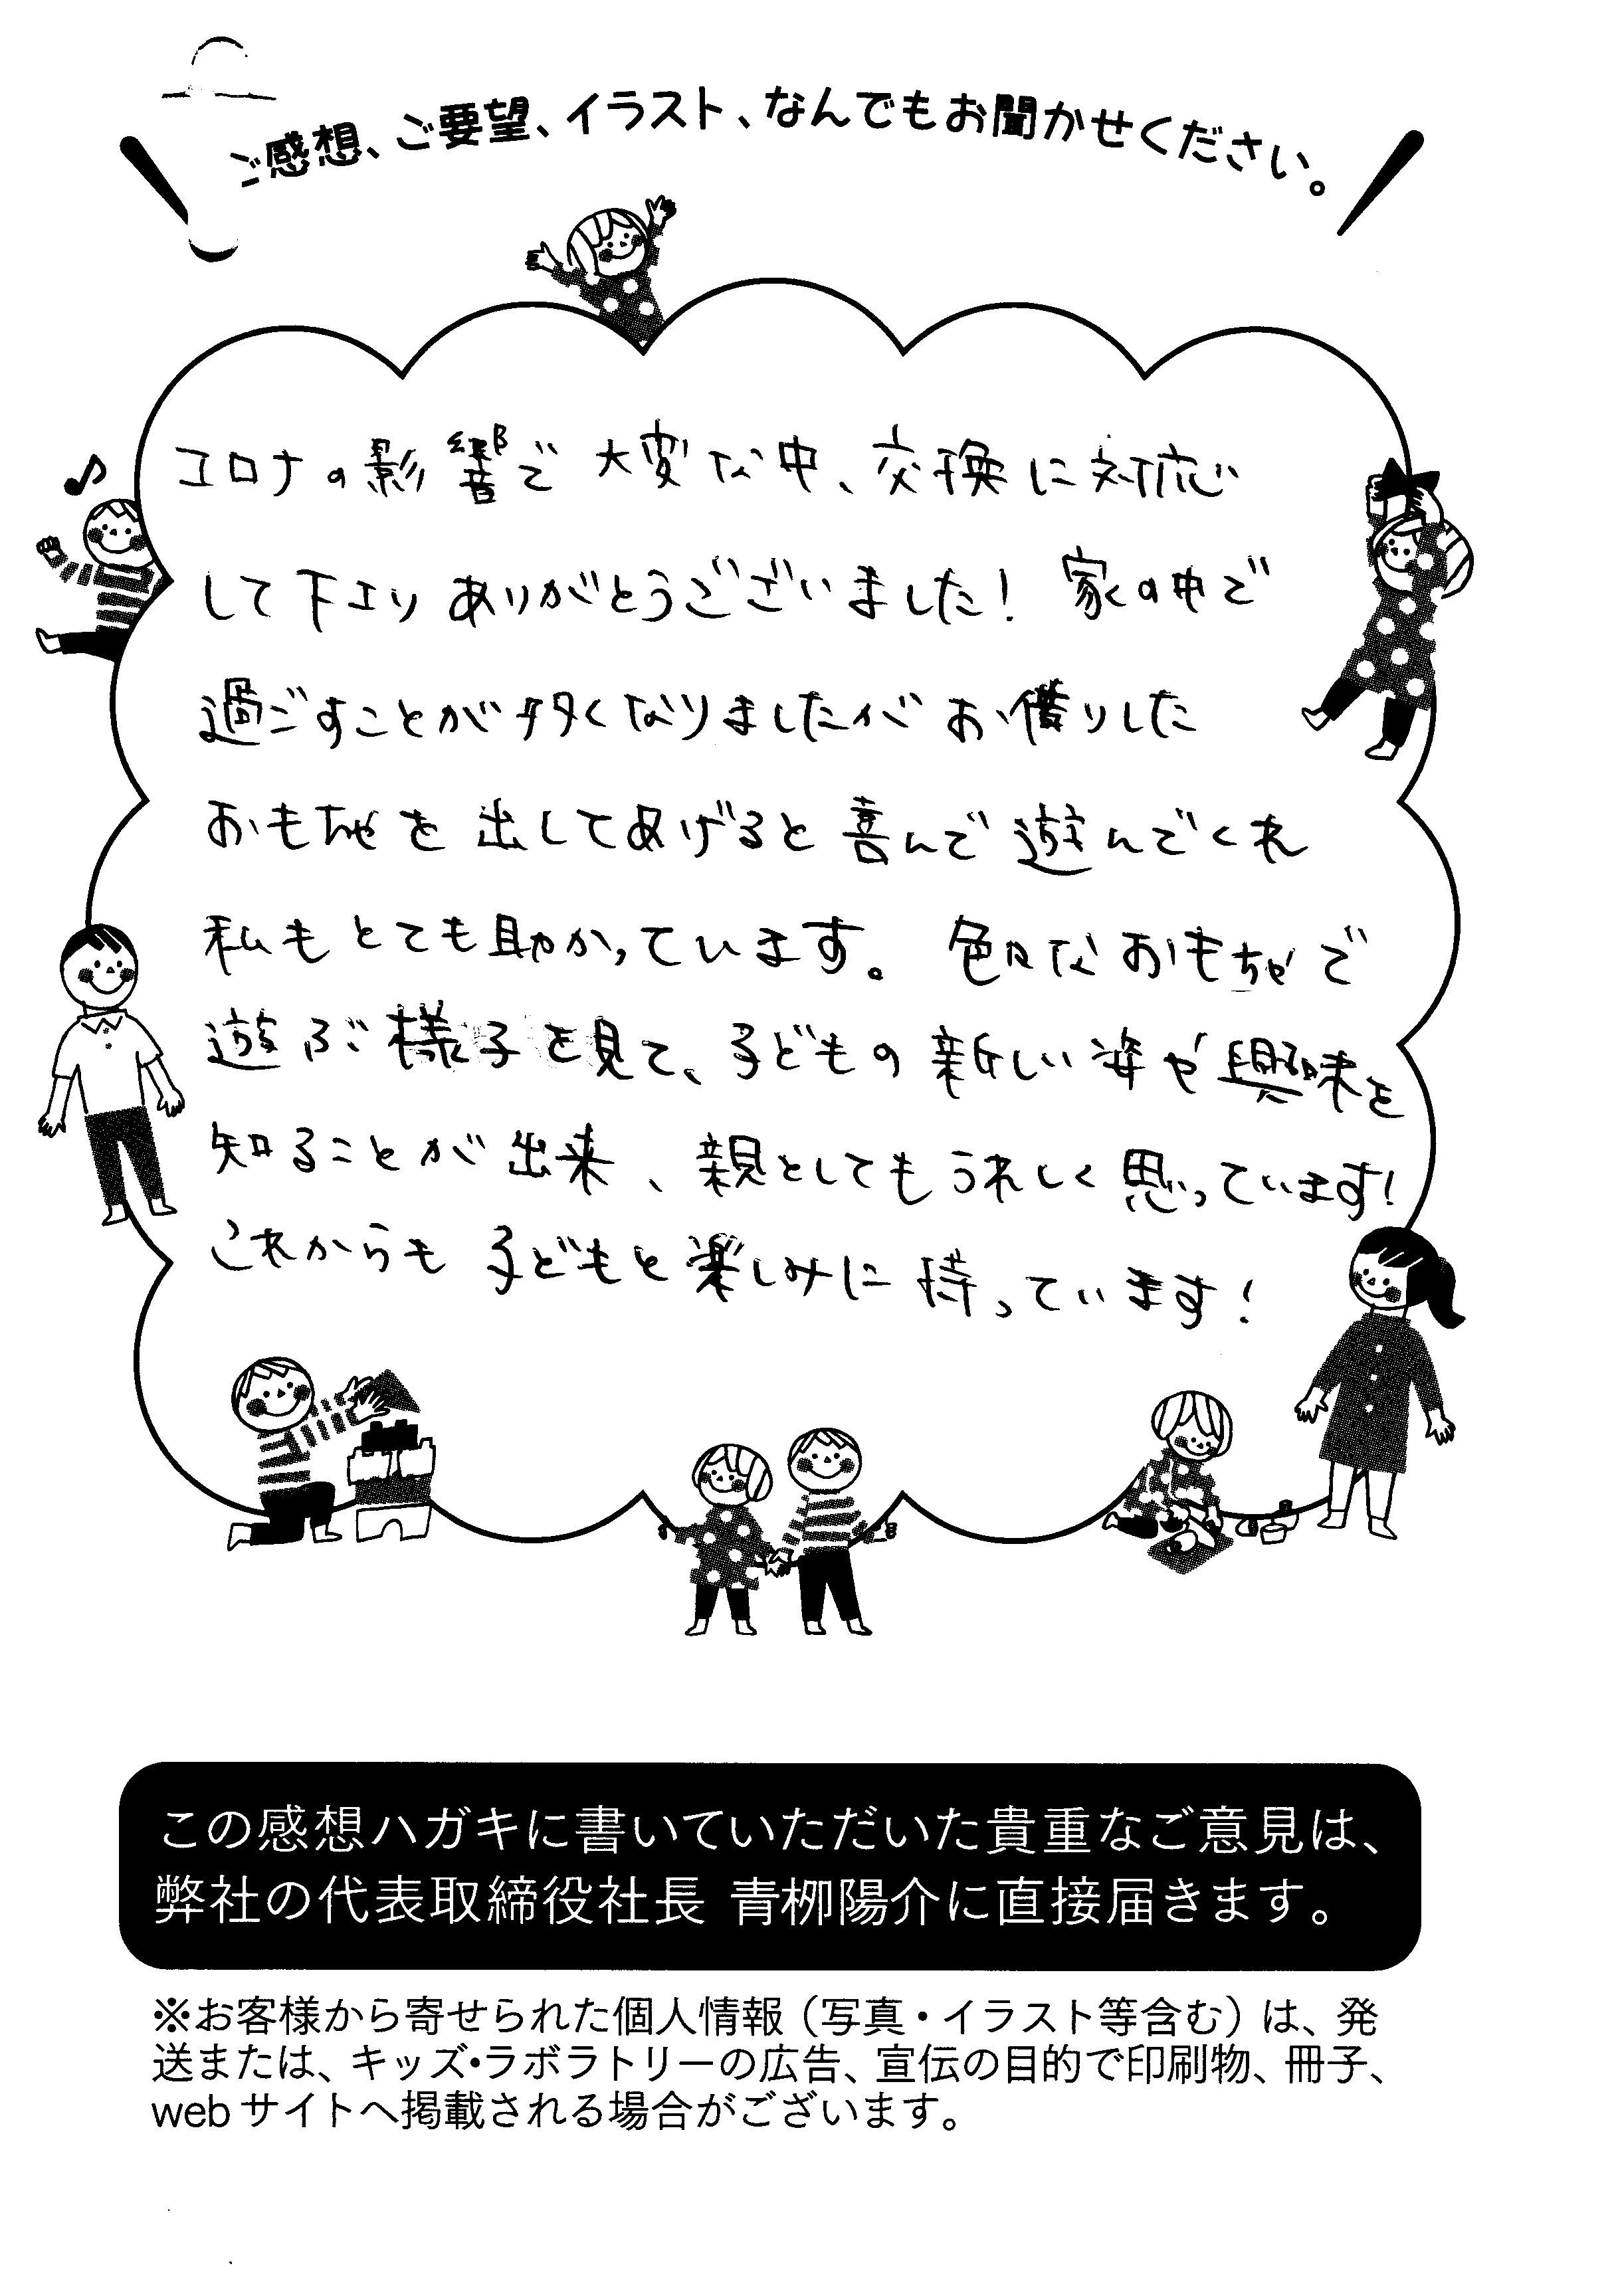 ご感想、ご要望、イラスト、なんでもお聞かせください。
コロナの影響で大変な中、交換に対応
して下エり ありがとうございました! 家の中で
過ごすことが多くなりましたが お借りした
おもちゃを出してあげると喜んで遊んでくれ
私もとても助かっています。色々なおもちゃで
遊ぶ様子を見て、子どもの新しい姿や興味を
知ることが出来、親としてもうれしく思っています!
これからも子どもと楽しみに持っています!
この感想ハガキに書いていただいた貴重なご意見は、
弊社の代表取締役社長 青栁陽介に直接届きます。
※お客様から寄せられた個人情報(写真・イラスト等含む)は、発
送または、キッズ・ラボラトリーの広告、宣伝の目的で印刷物、冊子、
webサイトへ掲載される場合がございます。